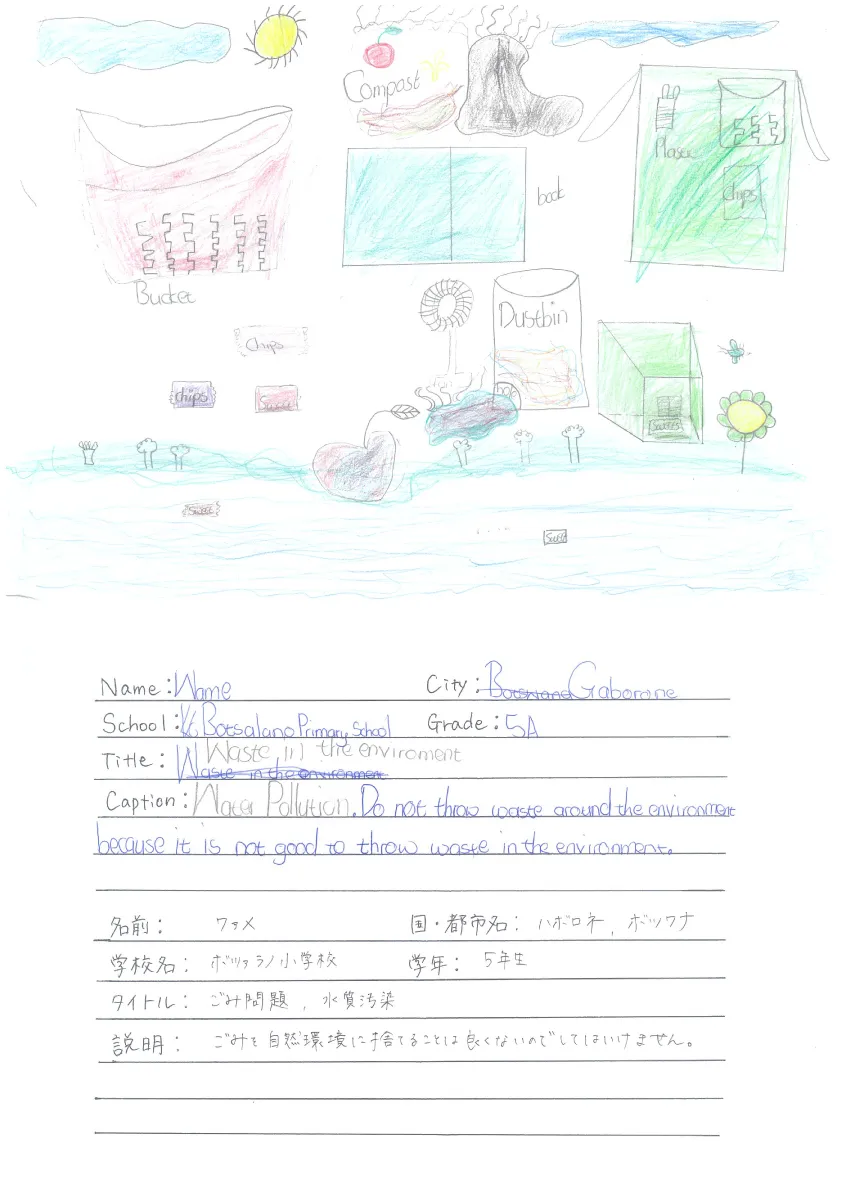 Compost
Plastic
chips
book
Bucket
Dustbin
Chips
chips
Sweet
Sweets
Sweet
Sweet
Name: Wame City: Botswana Gaborone
School: Botsalano Primary School Grade: 5A
Title: Waste in the enviroment
Waste in the environment
Caption: Water Pollution. Do not throw waste around the environment
because it is not good to throw waste in the environment.
名前: ワァメ 国・都市名: ハボロネ, ボツワナ
学校名: ボツァラノ小学校 学年: 5年生
タイトル: ごみ問題, 水質汚染
説明: ごみを自然環境に捨てることは良くないのでしてはいけません。